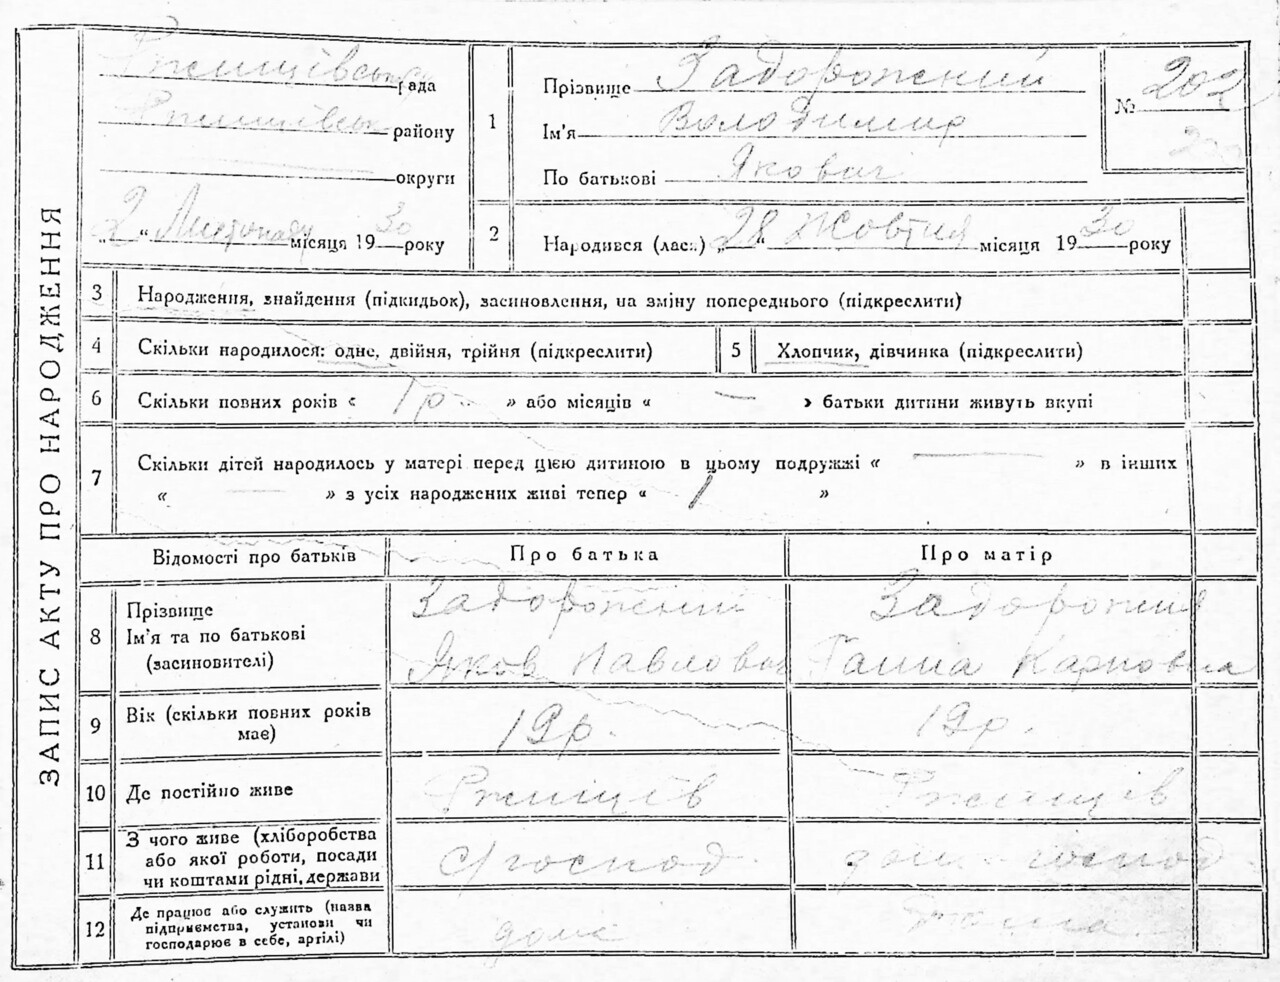 ЗАПИС АКТУ ПРО НАРОДЖЕННЯ
Ржищівська рада
Ржищівськ району
округи
„2“ Листопаду місяця 1930 року
1
Прізвище Задорожний
Ім'я Володимир
По батькові Якович
№ 202
2
Народився (лась) „28“ Жовтня місяця 1930 року
3 Народження, знайдення (підкидьок), засиновлення, на зміну попереднього (підкреслити)
4 Скільки народилося: одне, двійня, трійня (підкреслити)
5 Хлопчик, дівчинка (підкреслити)
6 Скільки повних років « 1 р. » або місяців « — » батьки дитини живуть вкупі
7 Скільки дітей народилось у матері перед цією дитиною в цьому подружжі « — » в інших
« — » з усіх народжених живі тепер « 1 »
Відомості про батьків Про батька Про матір
8 Прізвище Задорожний Задорожня
Ім'я та по батькові Яков Павлович Ганна Карповна
(засиновителі)
9 Вік (скільки повних років має) 19 р. 19 р.
10 Де постійно живе Ржищів Ржищів
11 З чого живе (хліборобства
або якої роботи, посади
чи коштами рідні, держави
с/господ дом. господ
12 Де працює або служить (назва
підприємства, установи чи
господарює в себе, артілі)
дома